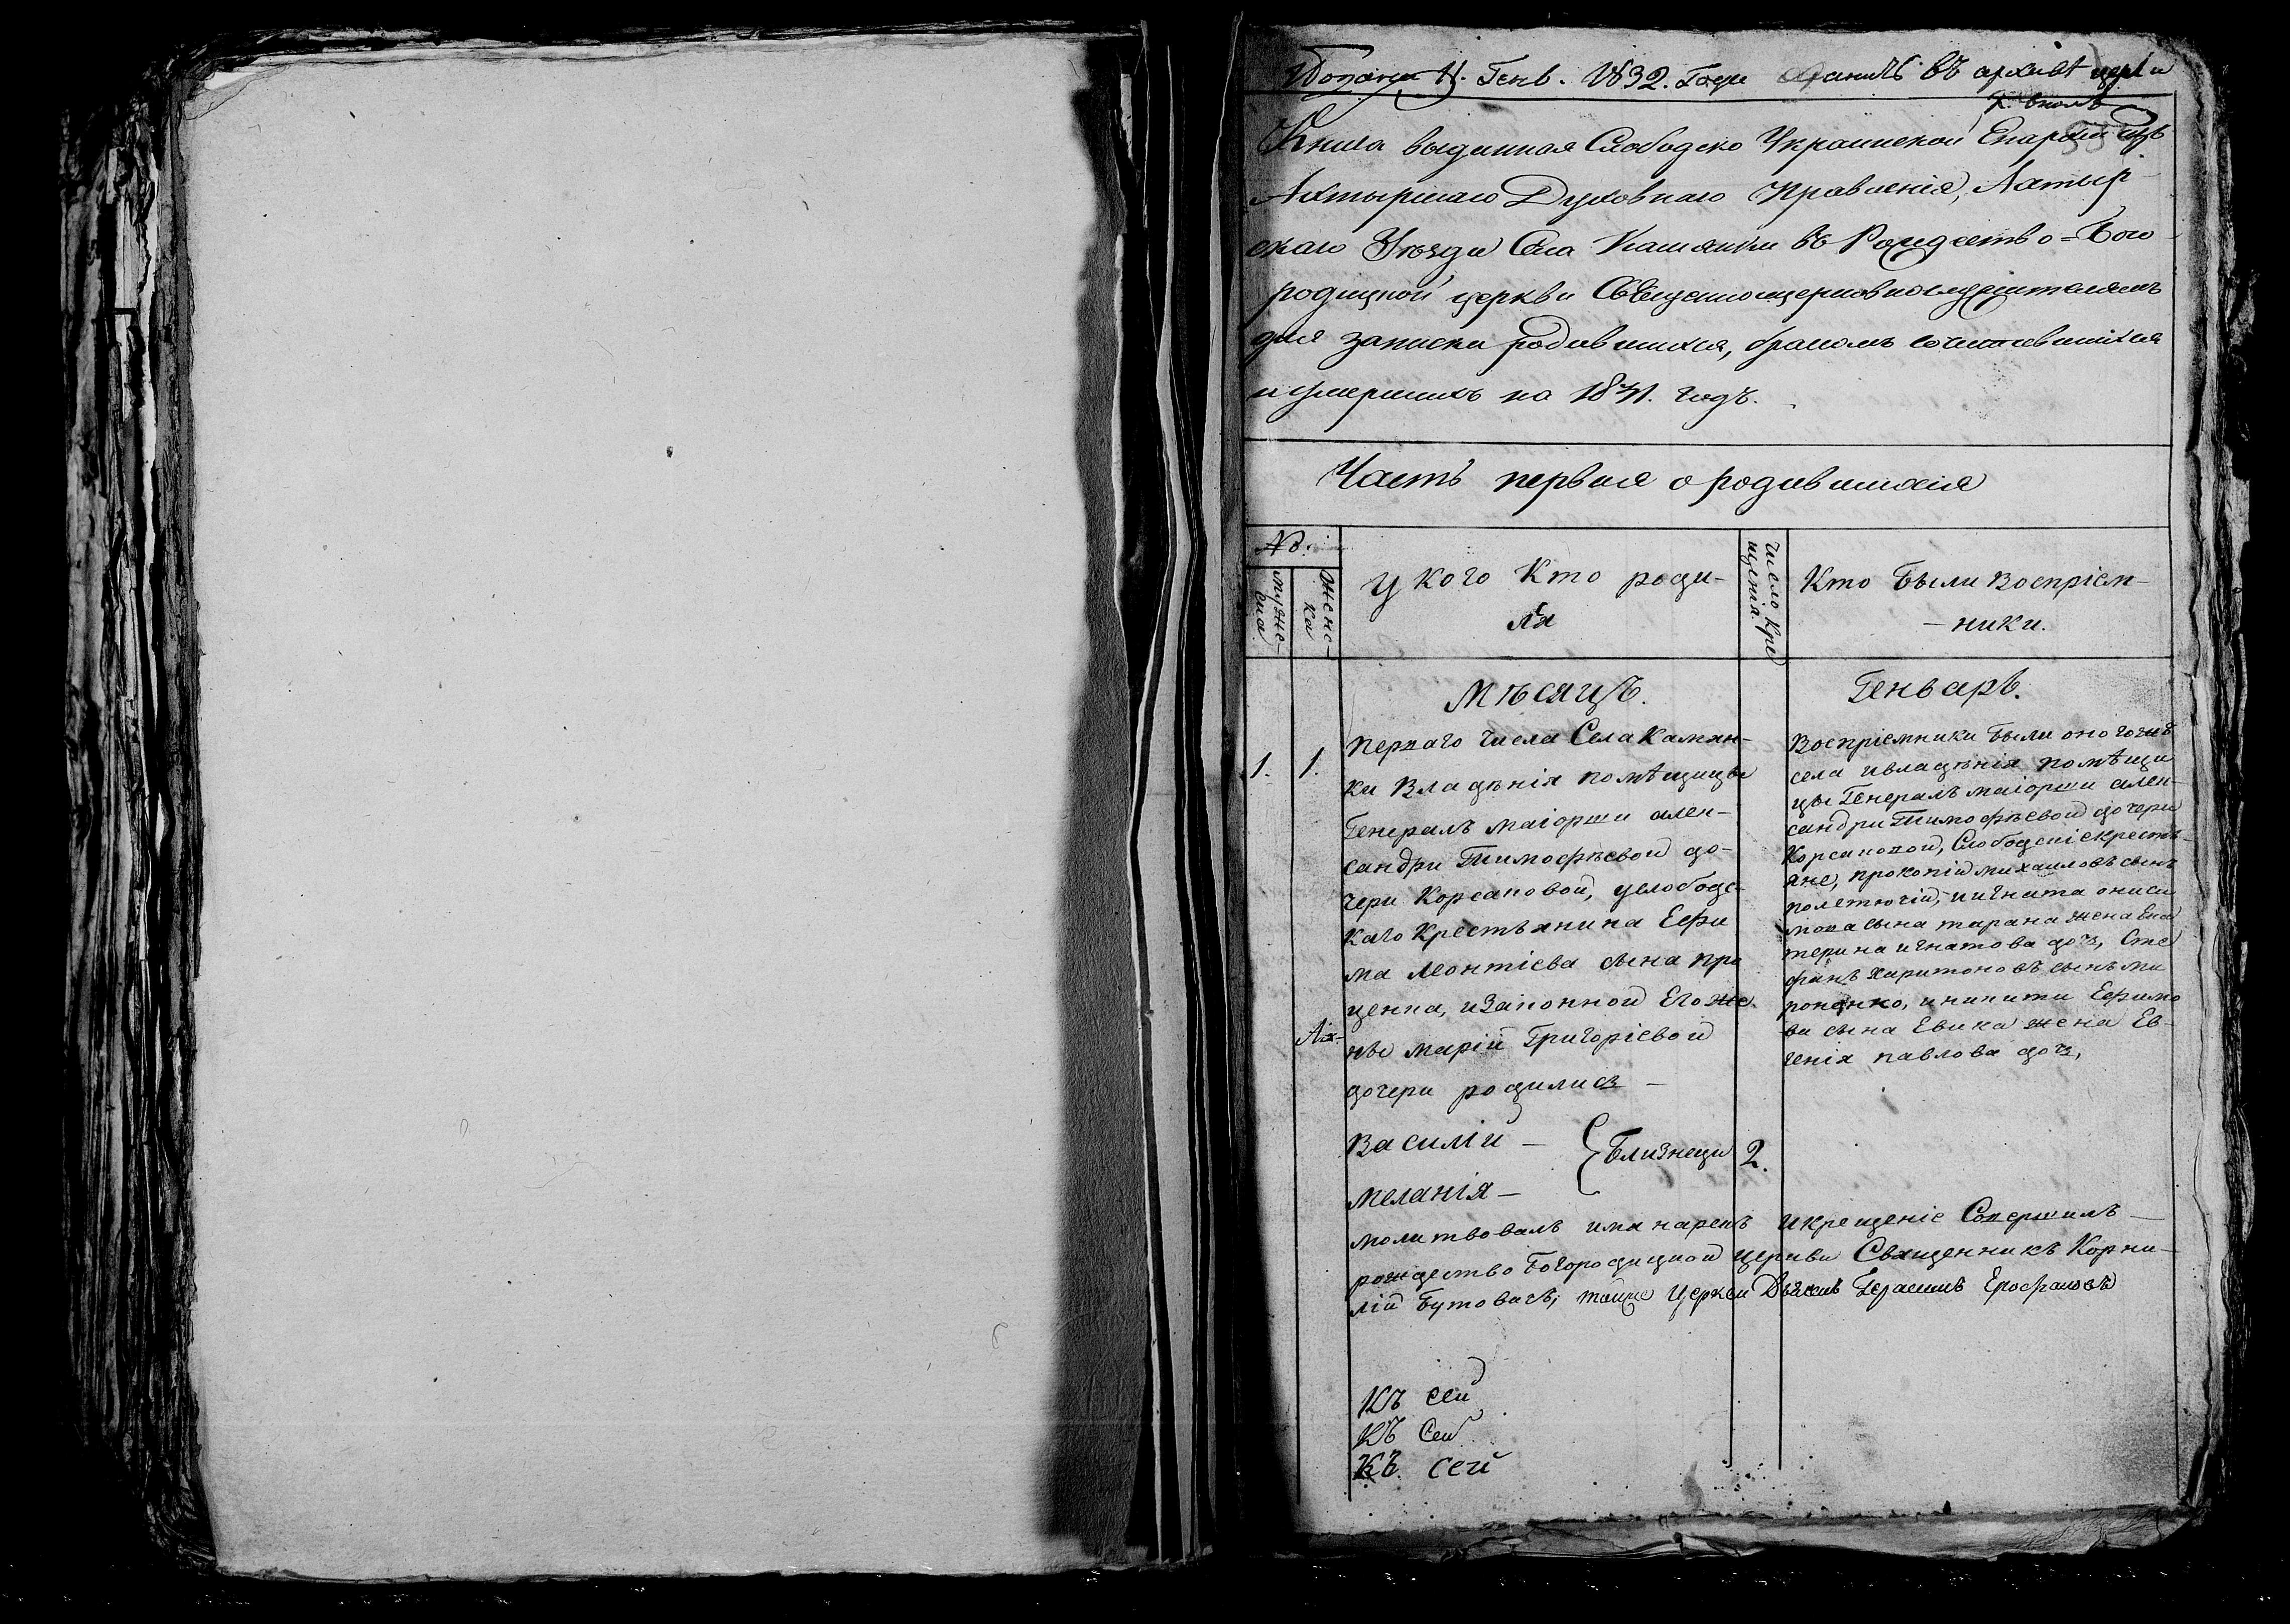 Генв. 1832. Года хранить въ архивѣ церкви
Книга выданная Слободско Украинской Епархіи изъ
Ахтырскаго Духовнаго Правленія, Ахтыр-
скаго Уѣзда Села Камянки въ Рождество=Бого-
родицкой церкви Священноцерковнослужителямъ
для записки родившихся, бракомъ сочетавшихся
и умершихъ на 1831. годъ.
Часть первая о родившихся
№.
мужеска.
женска
У кого Кто роди-
лся
число Крещенія.
Кто были воспріем-
-ники.
Мѣсяцъ.
Генварь.
1.
1.
перваго числа Села Камян-
ки Владѣнія помѣщицы
Генералъ маіорши алек-
сандри Тимофѣевой до-
чери Корсаковой, услободс-
каго Крестьянина Ефи
ма Леонтіева сына про
ценка, изаконной Его же-
ны маріи Григоріевой
дочери родились -
Василій -
Близнеци
2.
Меланія -
Воспріемники были оногожъ
села ивладѣнія помѣщи
цы Генералъ маіорши алек-
сандри Тимофѣевой дочери
Корсаковой, Слободскіе крестьяне,
прокопій михаиловъ сынъ
иигната ониси
мова сына тарана жена Ека
терина игнатова доч, Сте
фанъ харитоновъ сынъ ми
роненко, иникити Ефимо
ва сына Евика жена Ев-
генія павлова доч,
молитвовалъ имя нарекъ икрещеніе Совершилъ -
рождество Богородицкой церкви Священникъ Корни-
лій Бутовичъ, тояже Церкви Дьячекъ Герасимъ Ерофаловъ
Къ сей
Къ Сей
Къ сей